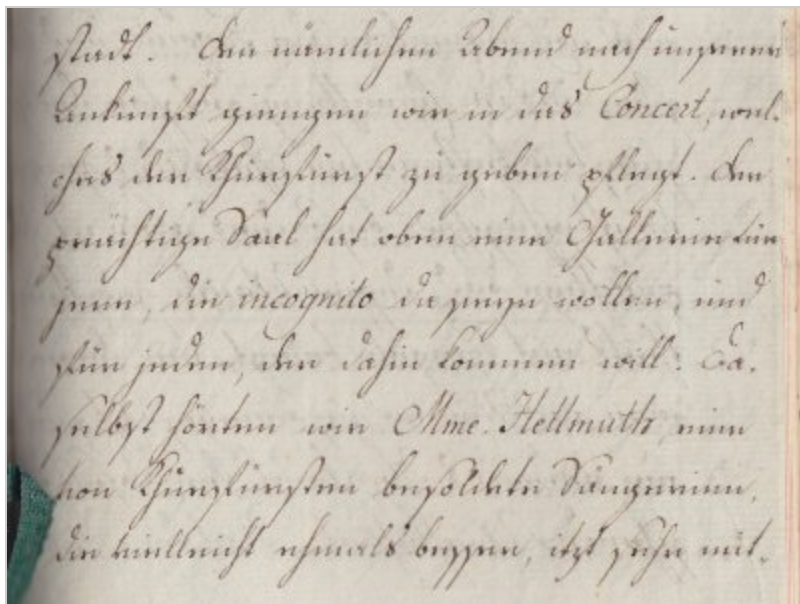 stadt. Den nämlichen Abend nach unserer
Ankunft giengen wir in das Concert, wel-
ches der Churfürst zu geben pflegt. Der
prächtige Saal hat oben eine Gallerie für
jene, die incognito da seyn wollen, und
für jeden, der dahin kommen will. Da-
selbst hörten wir Mme. Hellmuth, eine
von Churfürsten besoldete Sängerinn,
die vielleicht ehmals besser, itzt sehr mit-